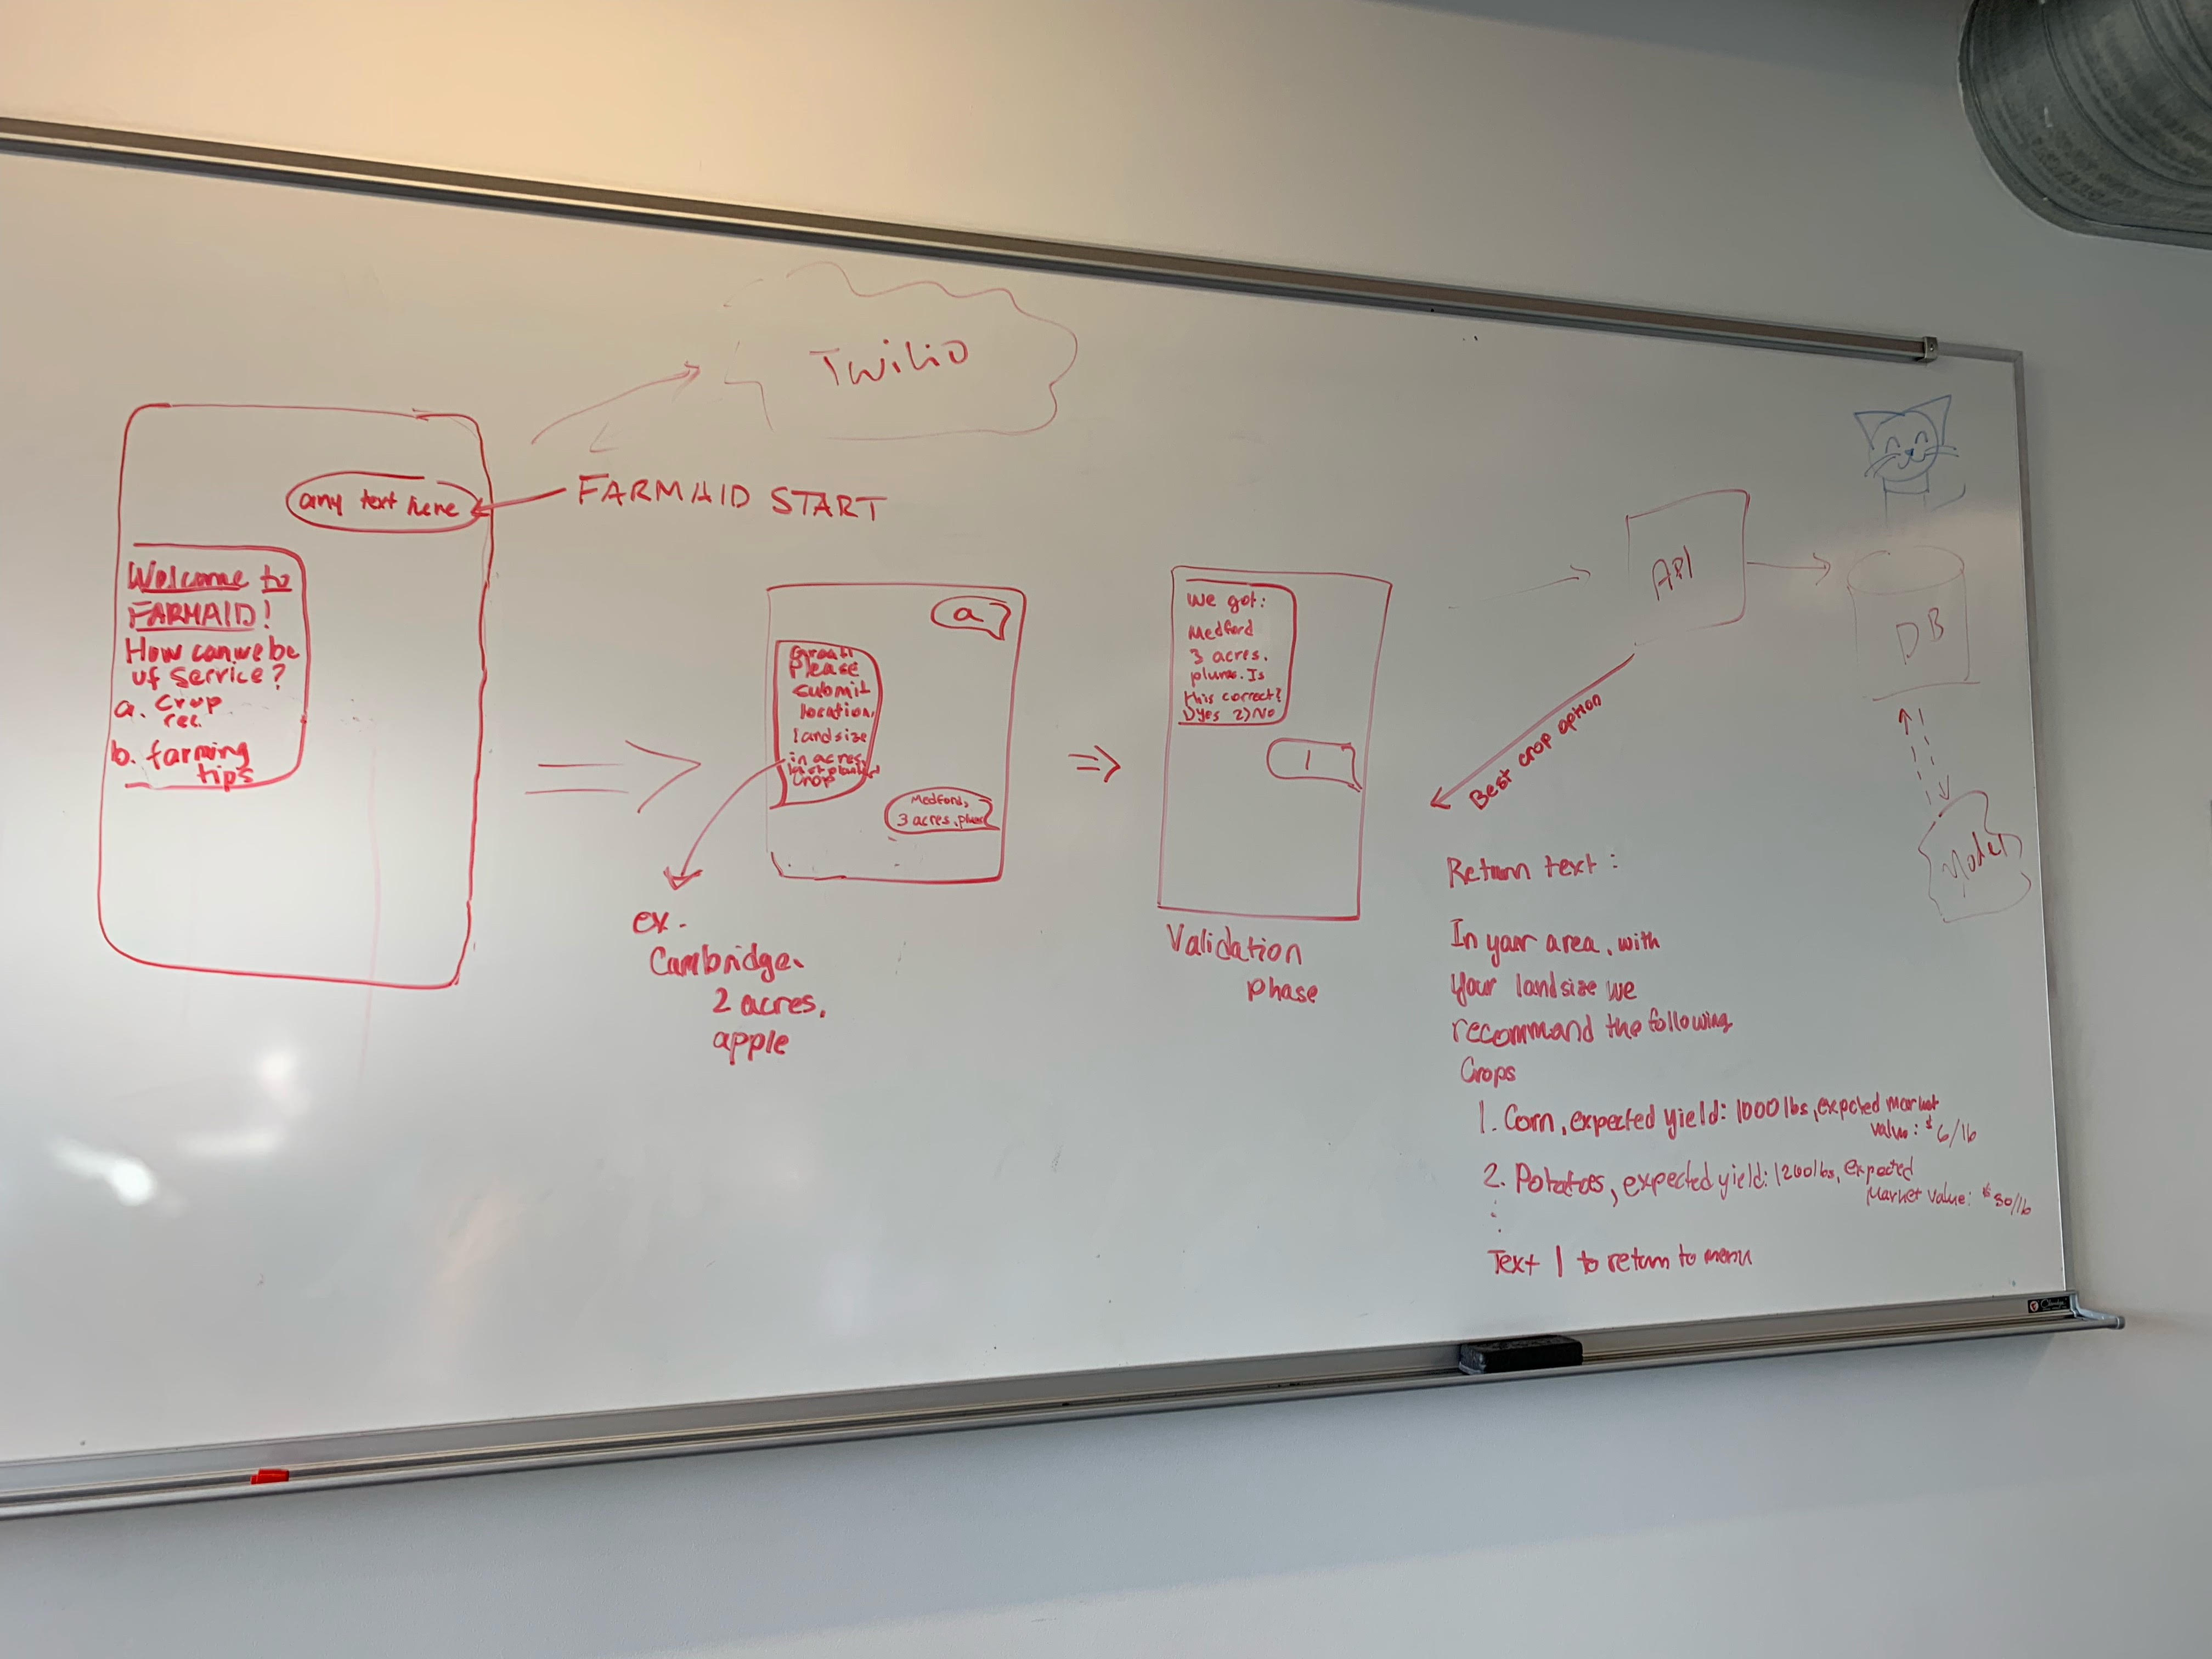 Twilio
any text here
FARMAID START
Welcome to
FARMAID!
How can we be
of service?
a. crop
rec.
b. farming
tips
a
Great!
Please
submit
location,
landsize
in acres,
crop
Medford,
3 acres, plum
ex.
Cambridge,
2 acres,
apple
We got:
Medford
3 acres,
plum. Is
this correct?
1) yes 2) No
1
Validation
phase
API
DB
Model
Best crop option
Return text:
In your area, with
your landsize we
recommand the following
Crops
1. Corn, expected yield: 1000 lbs, expected market
value: $6/lb
2. Potatoes, expected yield: 1200 lbs, expected
market value: $50/lb
Text 1 to return to menu